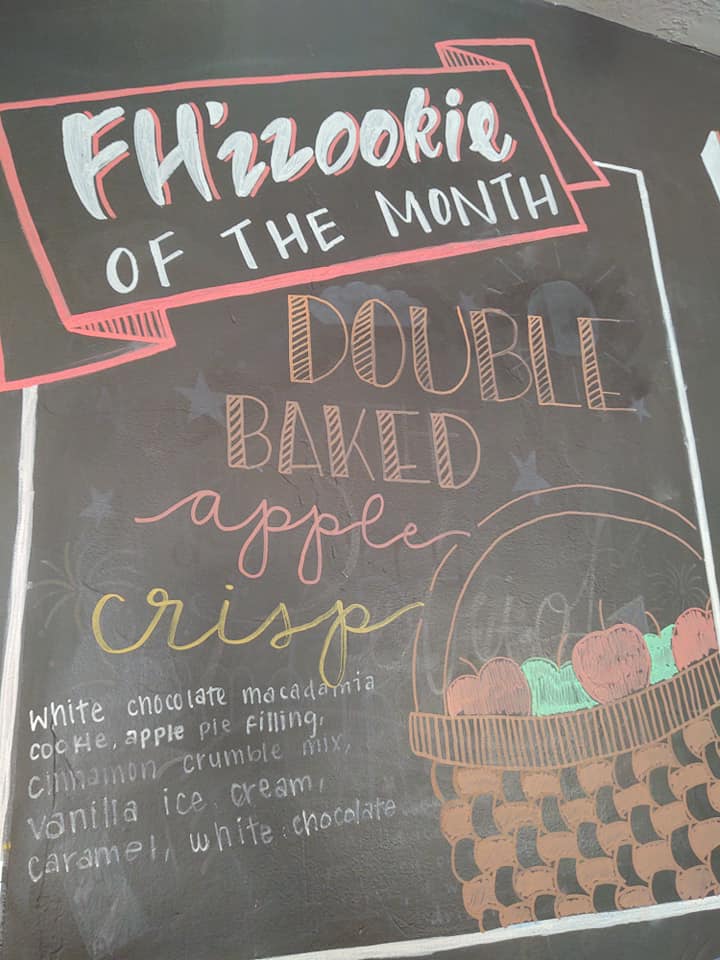 FH'zzookie
OF THE MONTH
DOUBLE
BAKED
apple
crisp
White chocolate macadamia
cookie, apple pie filling,
cinnamon crumble mix,
vanilla ice cream,
caramel, white chocolate